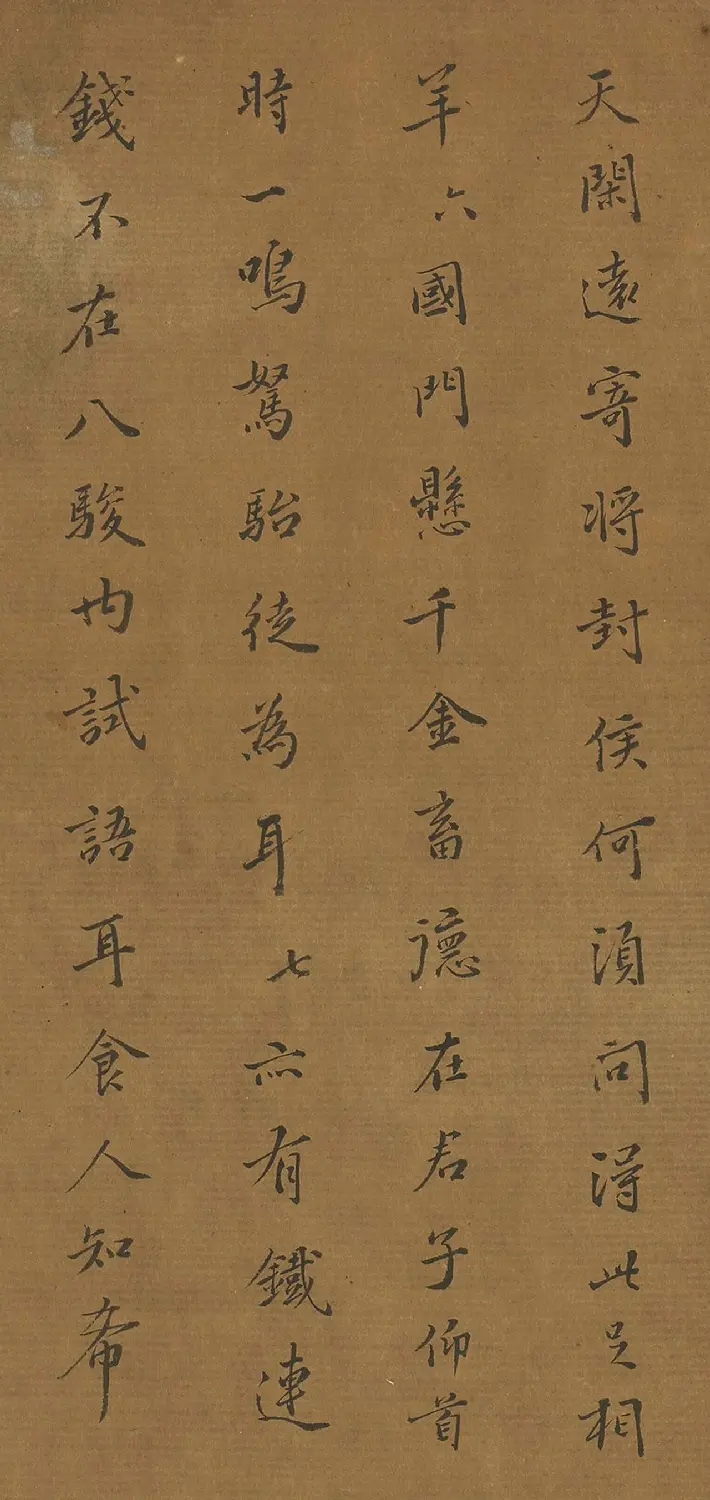 天閑遠寄將封侯何須問得此足相
羊六國門懸千金畜德在君子仰首
時一鳴駑駘徒為耳七亦有鐵連
錢不在八駿內試語耳食人知希